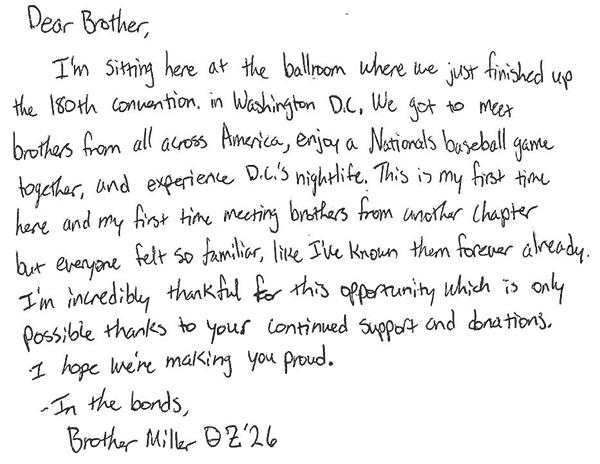 Dear Brother,
I'm sitting here at the ballroom where we just finished up
the 180th convention. in Washington D.C. We got to meet
brothers from all across America, enjoy a Nationals baseball game
together, and experience D.C.'s nightlife. This is my first time
here and my first time meeting brothers from another chapter
but everyone felt so familiar, like I've known them forever already.
I'm incredibly thankful for this opportunity which is only
possible thanks to your continued support and donations.
I hope we're making you proud.
-In the bonds,
Brother Miller ΘZ'26